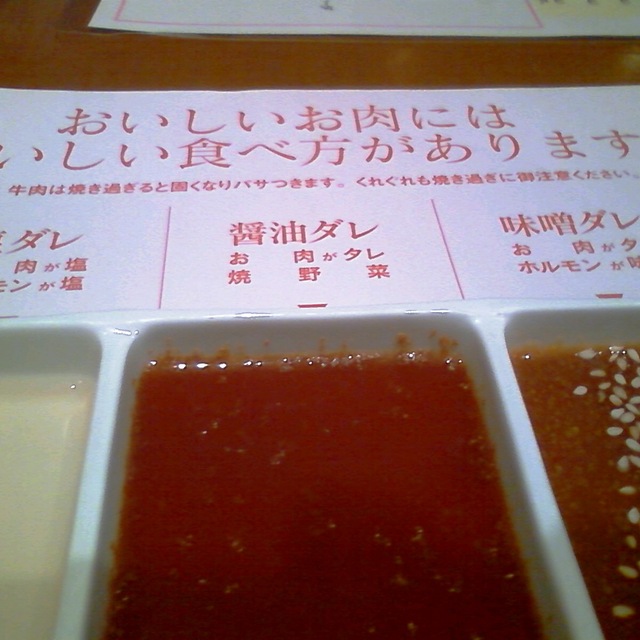 おいしいお肉には
いしい食べ方があります
牛肉は焼き過ぎると固くなりパサつきます。くれぐれも焼き過ぎに御注意ください。
ダレ
肉が塩
モンが塩
醤油ダレ
お肉がタレ
焼野菜
味噌ダレ
お肉がタ
ホルモンが味